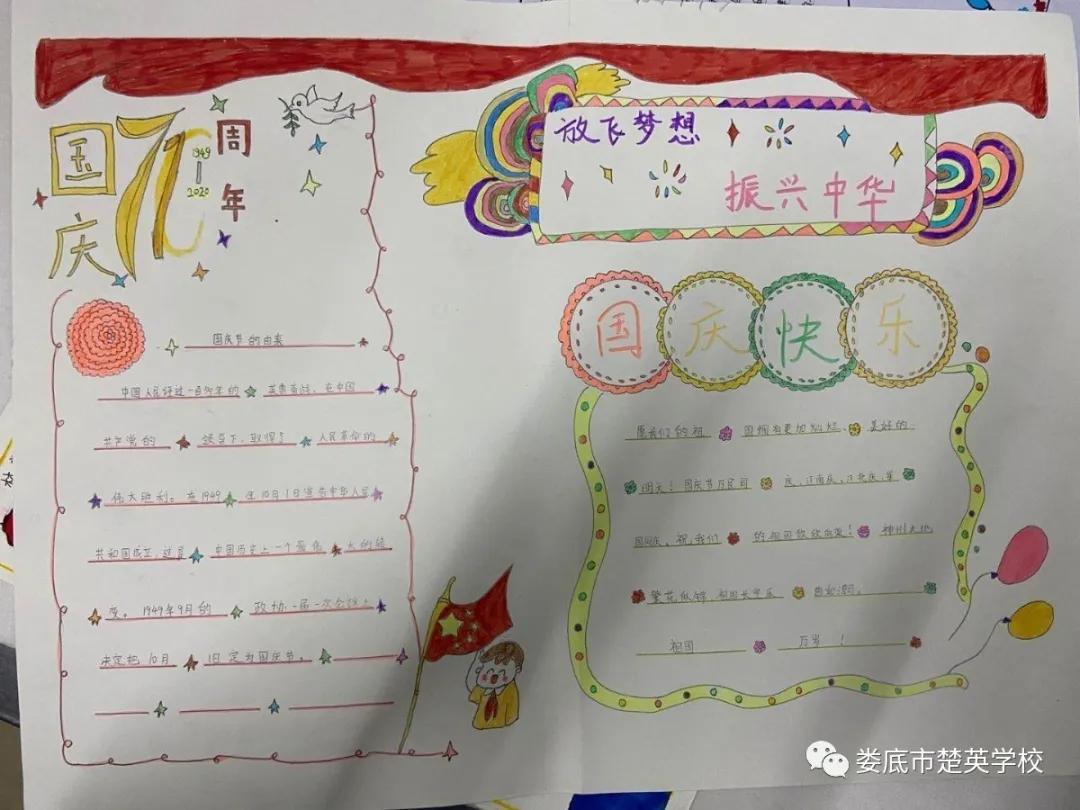 国庆71周年
1949
2020
放飞梦想
振兴中华
国庆节的由来
中国人民经过一百多年的 英勇奋战,在中国
共产党的 领导下,取得了 人民革命的
伟大胜利。在1949 年10月1日宣告中华人民
共和国成立,这是 中国历史上一个最伟 大的转
变。1949年9月的 政协一届一次会议上
决定把10月 1日定为国庆节。
国庆快乐
愿我们的祖 国拥有更加灿烂、美好的
明天!国庆节万民同 庆,江南庆,江北庆,
国同乐。祝我们 的祖国欣欣向荣! 神州大地
繁花似锦,祖国长空乐
祖国 万岁!
娄底市楚英学校